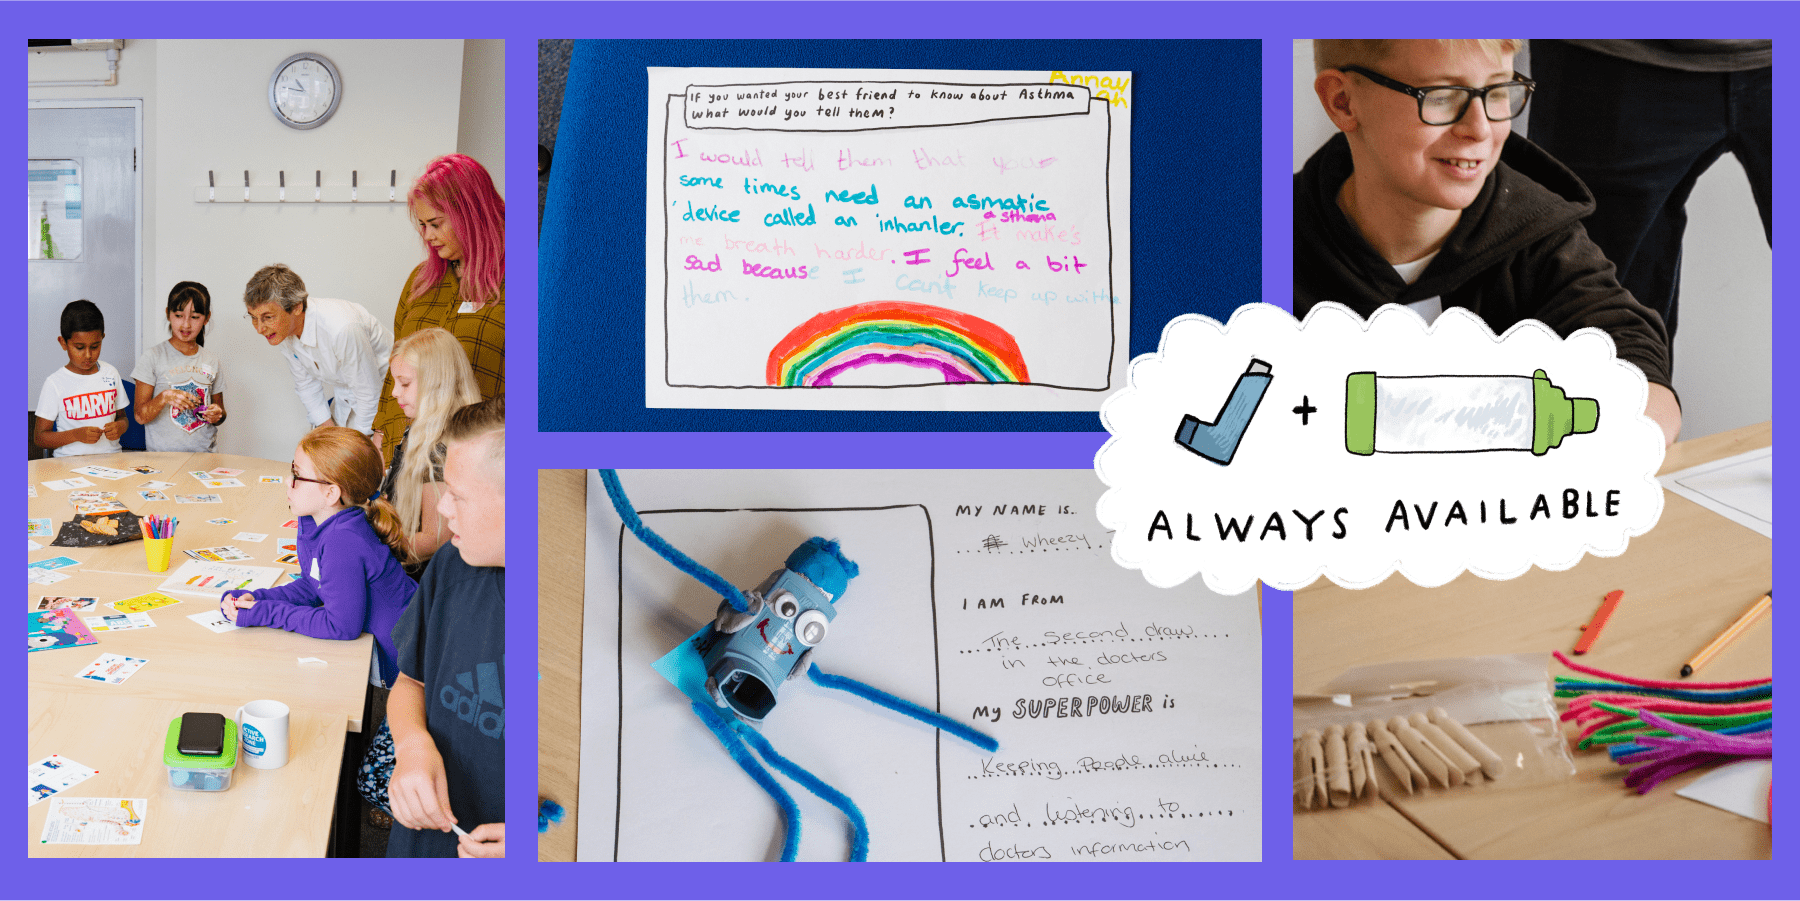 MARVEL
adidas
Annay
ah
If you wanted your best friend to know about Asthma
what would you tell them?
I would tell them that you
some times need an asmatic
device called an inhanler. asthma
It make's
me breath harder. I feel a bit
sad because I can't keep up withe
them.
MY NAME IS..
wheezy
I AM FROM
The second draw
in the doctors
office
My SUPERPOWER is
Keeping People alive
and listening to
doctors information
+
ALWAYS AVAILABLE